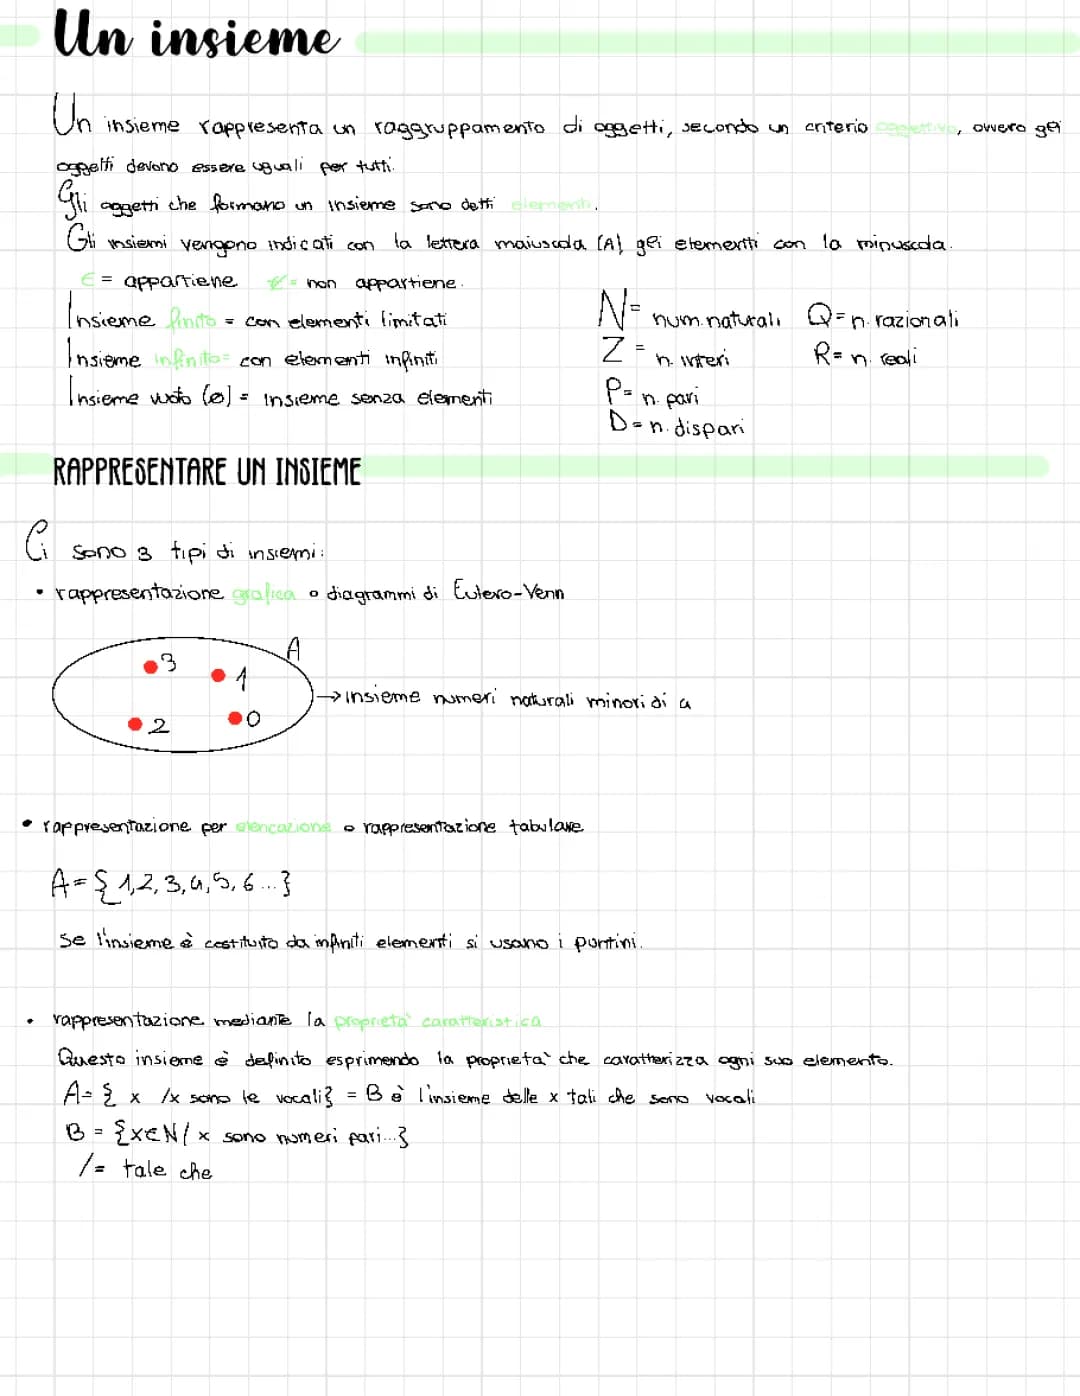 Un insieme
Un insieme rappresenta un raggruppamento di oggetti, secondo un criterio oggettivo, ovvero gli
oggetti devono essere uguali per tutti.
Gli oggetti che formano un insieme sono detti elementi.
Gli insiemi vengono indicati con la lettera maiuscola (A) gli elementi con la minuscola.
∈ = appartiene ∉ = non appartiene.
Insieme finito = con elementi limitati
Insieme infinito = con elementi infiniti
Insieme vuoto (∅) = insieme senza elementi
N = num. naturali Q = n. razionali
Z = n. interi R = n. reali
P = n. pari
D = n. dispari
RAPPRESENTARE UN INSIEME
Ci sono 3 tipi di insiemi:
• rappresentazione grafica o diagrammi di Eulero-Venn
A
3
1
→ insieme numeri naturali minori di 4
2
0
• rappresentazione per elencazione o rappresentazione tabulare
A = { 1, 2, 3, 4, 5, 6 ... }
Se l'insieme è costituito da infiniti elementi si usano i puntini.
• rappresentazione mediante la proprietà caratteristica
Questo insieme è definito esprimendo la proprietà che caratterizza ogni suo elemento.
A = { x / x sono le vocali } = B è l'insieme delle x tali che sono vocali
B = { x ∈ N / x sono numeri pari ... }
/ = tale che